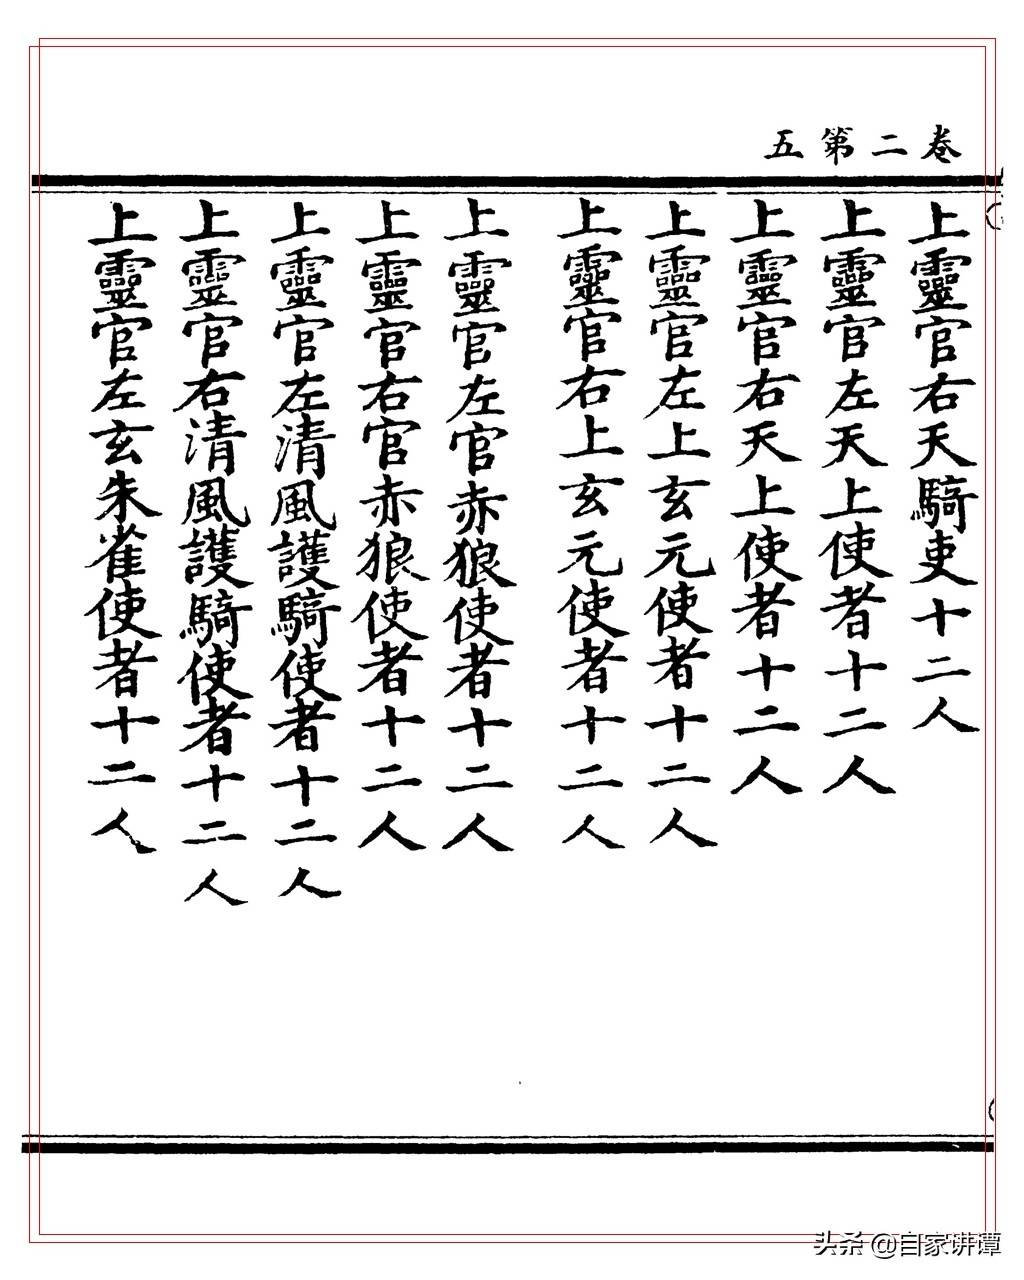 卷二第五
上靈官右天騎吏十二人
上靈官左天上使者十二人
上靈官右天上使者十二人
上靈官左上玄元使者十二人
上靈官右上玄元使者十二人
上靈官左官赤狼使者十二人
上靈官右官赤狼使者十二人
上靈官左清風護騎使者十二人
上靈官右清風護騎使者十二人
上靈官左玄朱雀使者十二人
头条 @自家讲谭